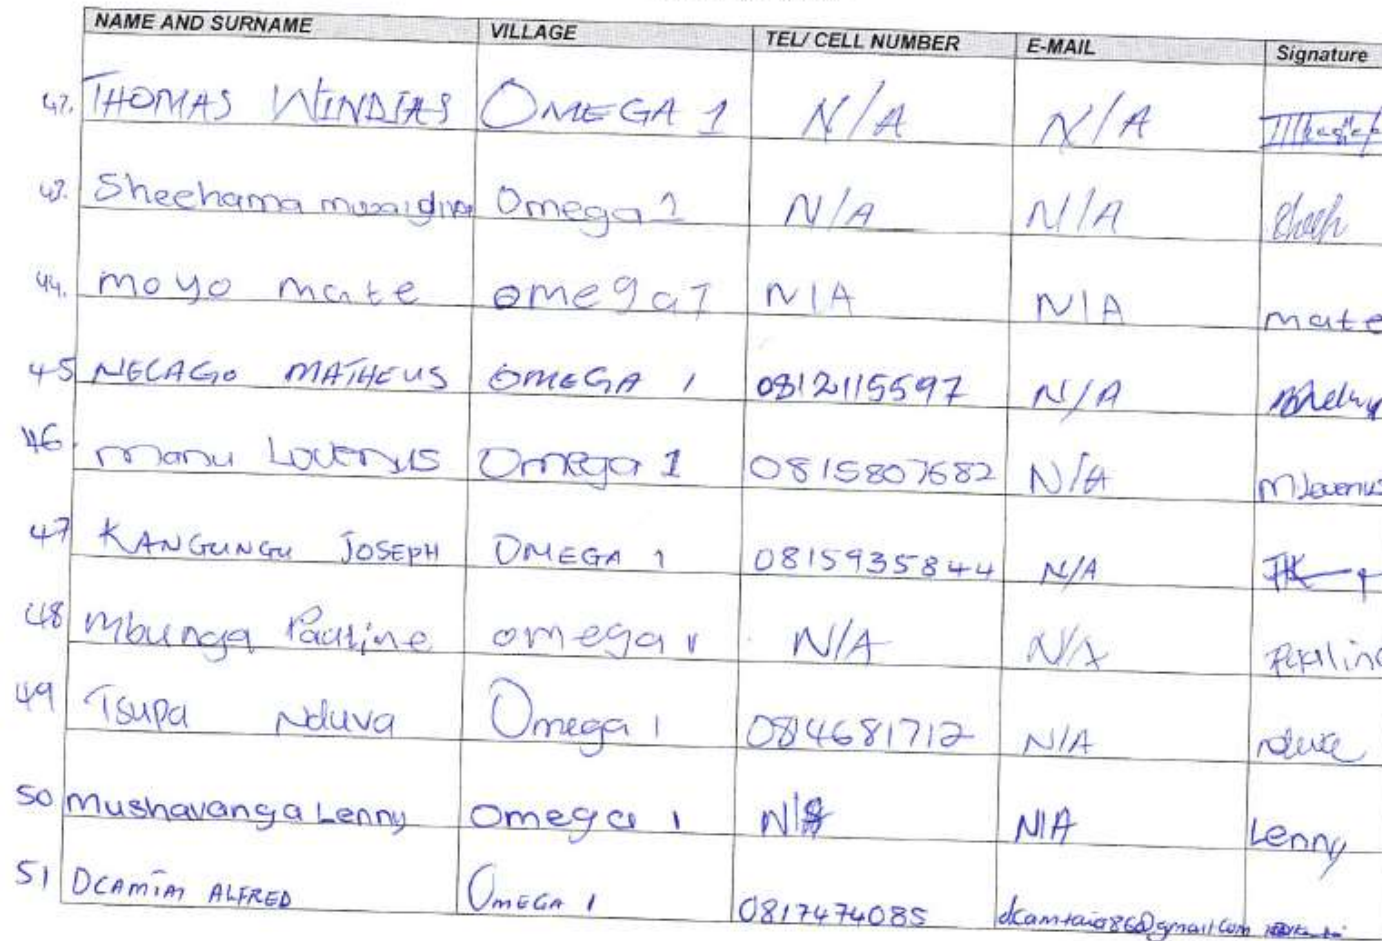 NAME AND SURNAME VILLAGE TEL/ CELL NUMBER E-MAIL Signature
42. THOMAS WINDIAS OMEGA 1 N/A N/A
43. Sheehama Omega 1 N/A N/A Sheeh
44. moyo mate omega 1 N/A N/A mate
45 NECAGO MATHEUS OMEGA 1 0812115597 N/A
46. manu Lovenus Omega 1 0815807682 N/A MLovenus
47 KANGUNGU JOSEPH OMEGA 1 0815935844 N/A JK
48 Mbunga Pauline omega 1 N/A N/A Pauline
49 Tsupa Nduva Omega 1 0814681712 N/A nduva
50 Mushavanga Lenny Omega 1 N/A N/A Lenny
51 DCAMIM ALFRED OMEGA 1 0817474085